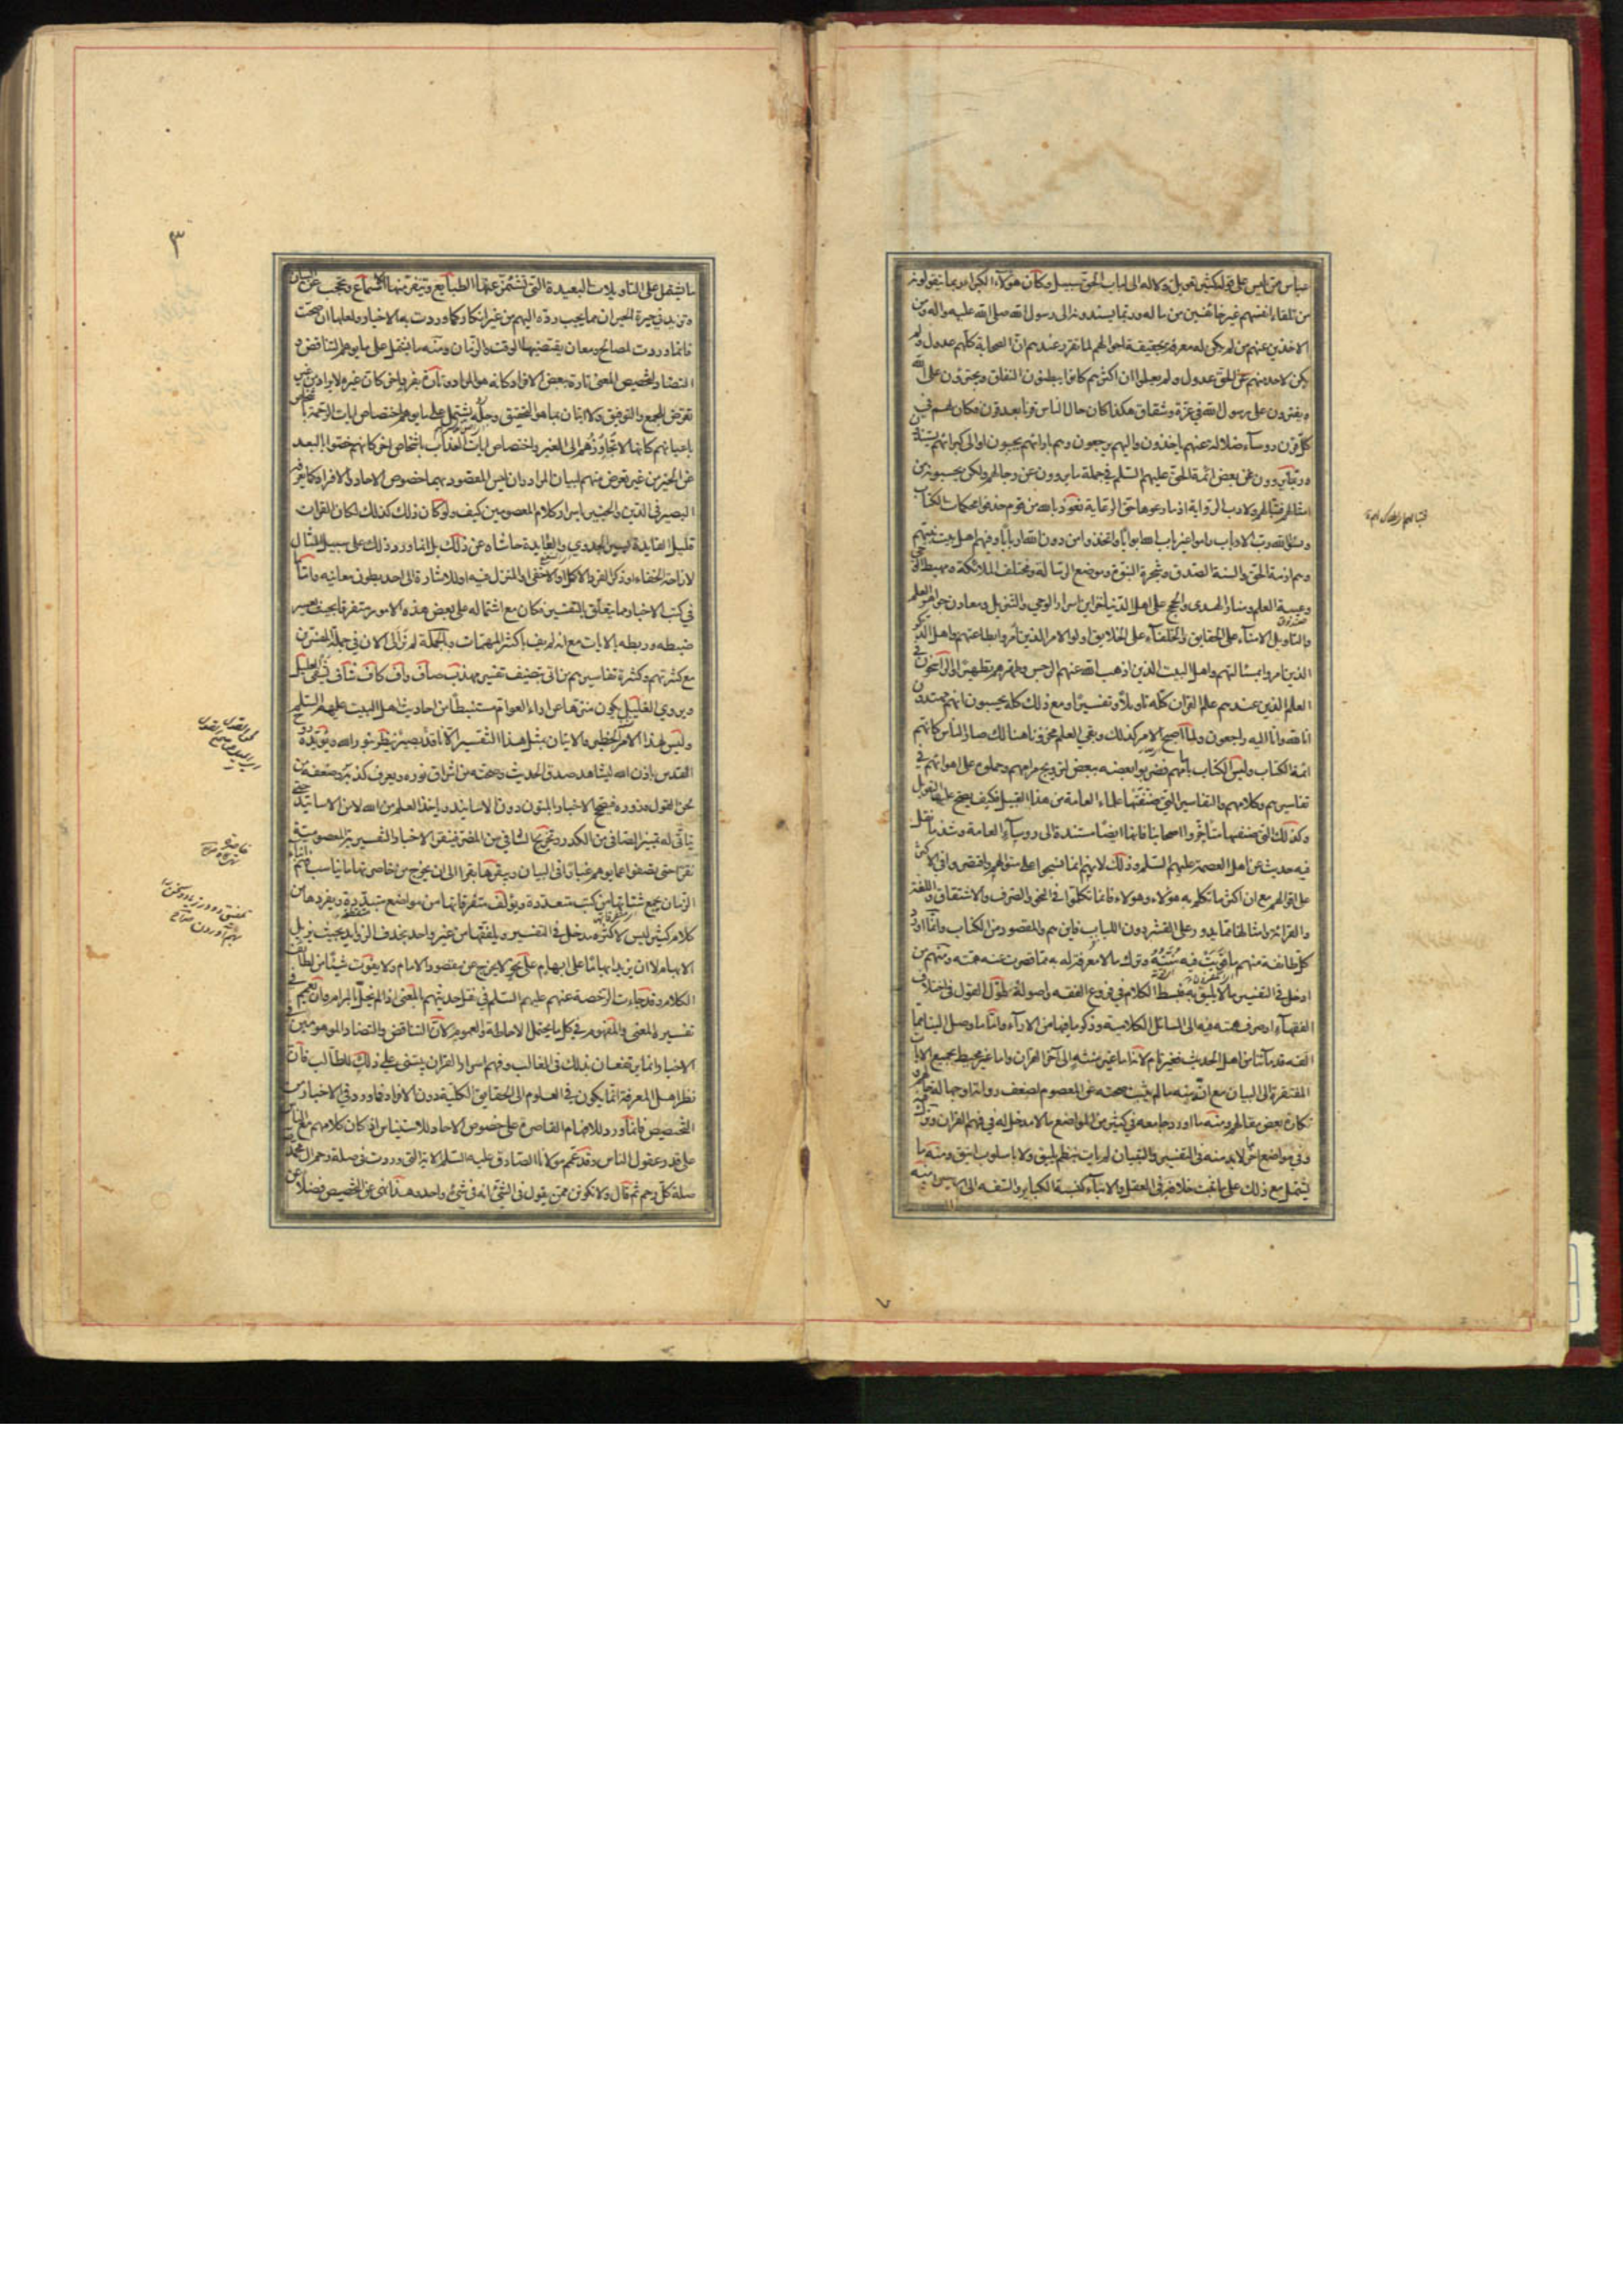 عباس ممن ليس على قوله كثير تعويل ولا له الى لباب الحق سبيل وكان هؤلاء الكبراء ربما يتقولونه
من تلقاء انفسهم غير خائفين من ماله وربما يسندونه الى رسول الله صلى الله عليه واله ومن
الاخذين عنهم من لم يكن له معرفة بحقيقة احوالهم لما تقرر عندهم ان الصحابة كلهم عدول ولم
يكن لاحد منهم عن الحق عدول ولم يعلموا ان اكثرهم كانوا يبطنون النفاق ويجترؤن على الله
ويفترون على رسول الله في عزة وشقاق هكذا كان حال الناس قرنا بعد قرن فكان لهم في
كل قرن رؤسآء ضلالة عنهم ياخذون واليهم يرجعون وهم بارائهم يجيبون او الى كبرائهم يستندون
وربما يروون عن بعض ائمة الحق عليهم السلم في جملة ما يروون عن رجالهم ولكن يحسبونه من
امثالهم فتبا لهم ولادب الرواية اذ ما رعوها حق الرعاية نعوذ بالله من قوم حذفوا محكمات الكتاب
ونسوا الله رب الارباب راموا غير باب الله ابوابا واتخذوا من دون الله اربابا وفيهم اهل بيت نبيهم
وهم ازمة الحق والسنة الصدق وشجرة النبوة وموضع الرسالة ومختلف الملائكة ومهبط الوحي
وعيبة العلم ومنار الهدى والحجج على اهل الدنيا خزاين اسرار الوحي والتنزيل ومعادن جواهر العلم
والتاويل الامناء على الحقايق والخلفاء على الخلايق اولوا الامر الذين امروا بطاعتهم واهل الذكر
الذين امروا بمسئالتهم واهل البيت الذين اذهب الله عنهم الرجس وطهرهم تطهيرا والراسخون في
العلم الذين عندهم علم القران كله تاويلا وتفسيرا ومع ذلك كله يحسبون انهم مهتدون
انا لله وانا اليه راجعون ولما اصبح الامر كذلك وبقي العلم مخزونا هنالك صار الناس كانهم
ائمة الكتاب وليس الكتاب بامامهم فضربوا بعضه ببعض لترويج مرامهم وحملوه على اهوائهم في
تفاسيرهم وكلامهم والتفاسير التي صنفها علماء العامة من هذا القبيل فكيف يصح عليها التعويل
وكذلك التي صنفها متاخروا اصحابنا فانها ايضا مستندة الى رؤسآء العامة وشذ ما نقل
فيه حديث عن اهل العصمة عليهم السلم وذلك لانهم انما نسجوا على منوالهم واقتصروا في الاكثر
على اقوالهم مع ان اكثر ما تكلم به هؤلاء وهؤلاء فانما تكلموا في النحو والصرف والاشتقاق واللغة
والقراءة وامثالها مما يدور على القشر دون اللباب فاين هم والمقصود من الكتاب وانما اورد
كل طائفة منهم ما قويت فيه منته وترك ما لا معرفة له به مما قصرت عنه همته ومنهم من
ادخل في التفسير ما لا يليق به فبسط الكلام في فروع الفقه واصوله وطول القول في اختلاف
الفقهآء او صرف همته فيه الى المسائل الكلامية وذكر ما فيها من الارآء واما ما وصل الينا مما
الفه قدمآئنا من اهل الحديث فغير تام لانه اما غير منته الى آخر القران واما غير محيط بجميع الايات
المفتقرة الى البيان مع ان منه ما لم يثبت صحته عن المعصوم لضعف رواته او جهالة حالهم ونكارة
بعض مقالهم ومنه ما اورد جامعه في كثير من المواضع ما لا مدخل له في فهم القران وترك
وفي مواضع اخر لا بد منه في التفسير والتبيان لم يات بنظم يليق ولا باسلوب انيق ومنه ما
يشتمل مع ذلك على ما ثبت خلافه في العقل والانباء كنسبة الكبائر والسفه الى الانبياء ومنه
٣
ما يشتمل على التاويلات البعيدة التي تشمئز عنها الطبايع وتنفر منها الاسماع وتحجب عن البيان
وتزيد في حيرة الحيران مما يجب رده اليهم من غير انكار كما وردت به الاخبار ولعلها ان صحت
فانما وردت لمصالح ومعان يقتضيها الوقت والزمان ومنه ما يشتمل على ما يوهم التناقض و
التضاد لتخصيص المعنى تارة ببعض الافراد كانه هو المراد وتارة بفرد اخر كان غيره لا يراد من غير
تعرض للجمع والتوفيق ولا اتيان بما هو التحقيق وجله يشتمل على ما يوهم اختصاص ايات الرحمة باشخاص
باعيانهم كانها لا تجاوزهم الى الغير واختصاص ايات العذاب باشخاص اخر كانهم خصوا بالبعد
عن الخير من غير تعرض منهم لبيان المراد وان ليس المقصود بهما خصوص الاحاد والافراد كما يعرفه
البصير في الدين والخبير باسرار كلام المعصومين كيف ولو كان ذلك كذلك لكان القران
قليل الفايدة يسير الجدوى والعايدة حاشاه عن ذلك بل انما ورد ذلك على سبيل المثال
لازاحة الخفاء او ذكر الفرد الاكمل او الاخفى او المنزل فيه او للاشارة الى احد بطون معانيه واما
في كتب الاخبار مما يتعلق بالتفسير فكان مع اشتماله على بعض هذه الامور متفرقا بحيث يعسر
ضبطه وربطه بالايات مع انه لم يف باكثر المهمات وبالجملة لم نر الى الان في جملة المفسرين
مع كثرتهم وكثرة تفاسيرهم من اتى بتصنيف تفسير مهذب صاف واف كاف شاف يشفي العليل
ويروي الغليل يكون منزها عن اراء العوام مستنبطا من احاديث اهل البيت عليهم السلم
وليس لهذا الامر الخطير والاتيان بمثل هذا التفسير الا ناقد بصير ينظر بنور الله ويؤيده روح
القدس باذن الله ليشاهد صدق الحديث وصحته من اشراق نوره ويعرف كذبه وضعفه من
لحن القول وزوره فيصحح الاخبار بالمتون دون الاسانيد وياخذ العلم من الله لا من الاسانيد حتى
يتاتى له تمييز الصافي من الكدر وتخريج الشافي من المضر فينقر الاخبار التفسيرية المعصومية
نقرا حتى يصفوا عما يوهم غبارا في البيان ويبقرها بقرا الى ان يخرج من خاصرتها ما يناسب فهم ابناء
الزمان يجمع شتاتها من كتب متعددة ويؤلف متفرقاتها من مواضع متبددة ويفردها من
كلام كثير ليس لاكثره مدخل في التفسير ويلفقها من غير واحد بحذف الزوايد بحيث يزيل
الابهام لا ان يزيد ابهاما على ابهام على نحو لا يخرج عن مقصود الامام ولا يفوت شيئا من لطائف
الكلام وقد جاءت الرخصة عنهم عليهم السلم في نقل حديثهم بالمعنى اذا لم يخل بالمرام وان يعمم في
تفسيره المعنى والمفهوم في كل ما يحتمل الاحاطة والعموم لان التناقض والتضاد الموهومين في
الاخبار انما يرتفعان بذلك في الغالب وفهم اسرار القران يبتني على ذلك للطالب فان
نظر اهل المعرفة انما يكون في العلوم الى الحقايق الكلية دون الافراد فما ورد في الاخبار من
التخصيص فانما ورد للافهام القاصرة على خصوص الاحاد وللاستيناس اذ كان كلامهم مع الناس
على قدر عقول الناس وقد عمم مولانا الصادق عليه السلم الاية التي وردت في صلة رحم ال محمد
صلة كل رحم ثم قال ولا تكونن ممن يقول في الشئ انه في شئ واحد وهذا نهى عن التخصيص فضلا عن